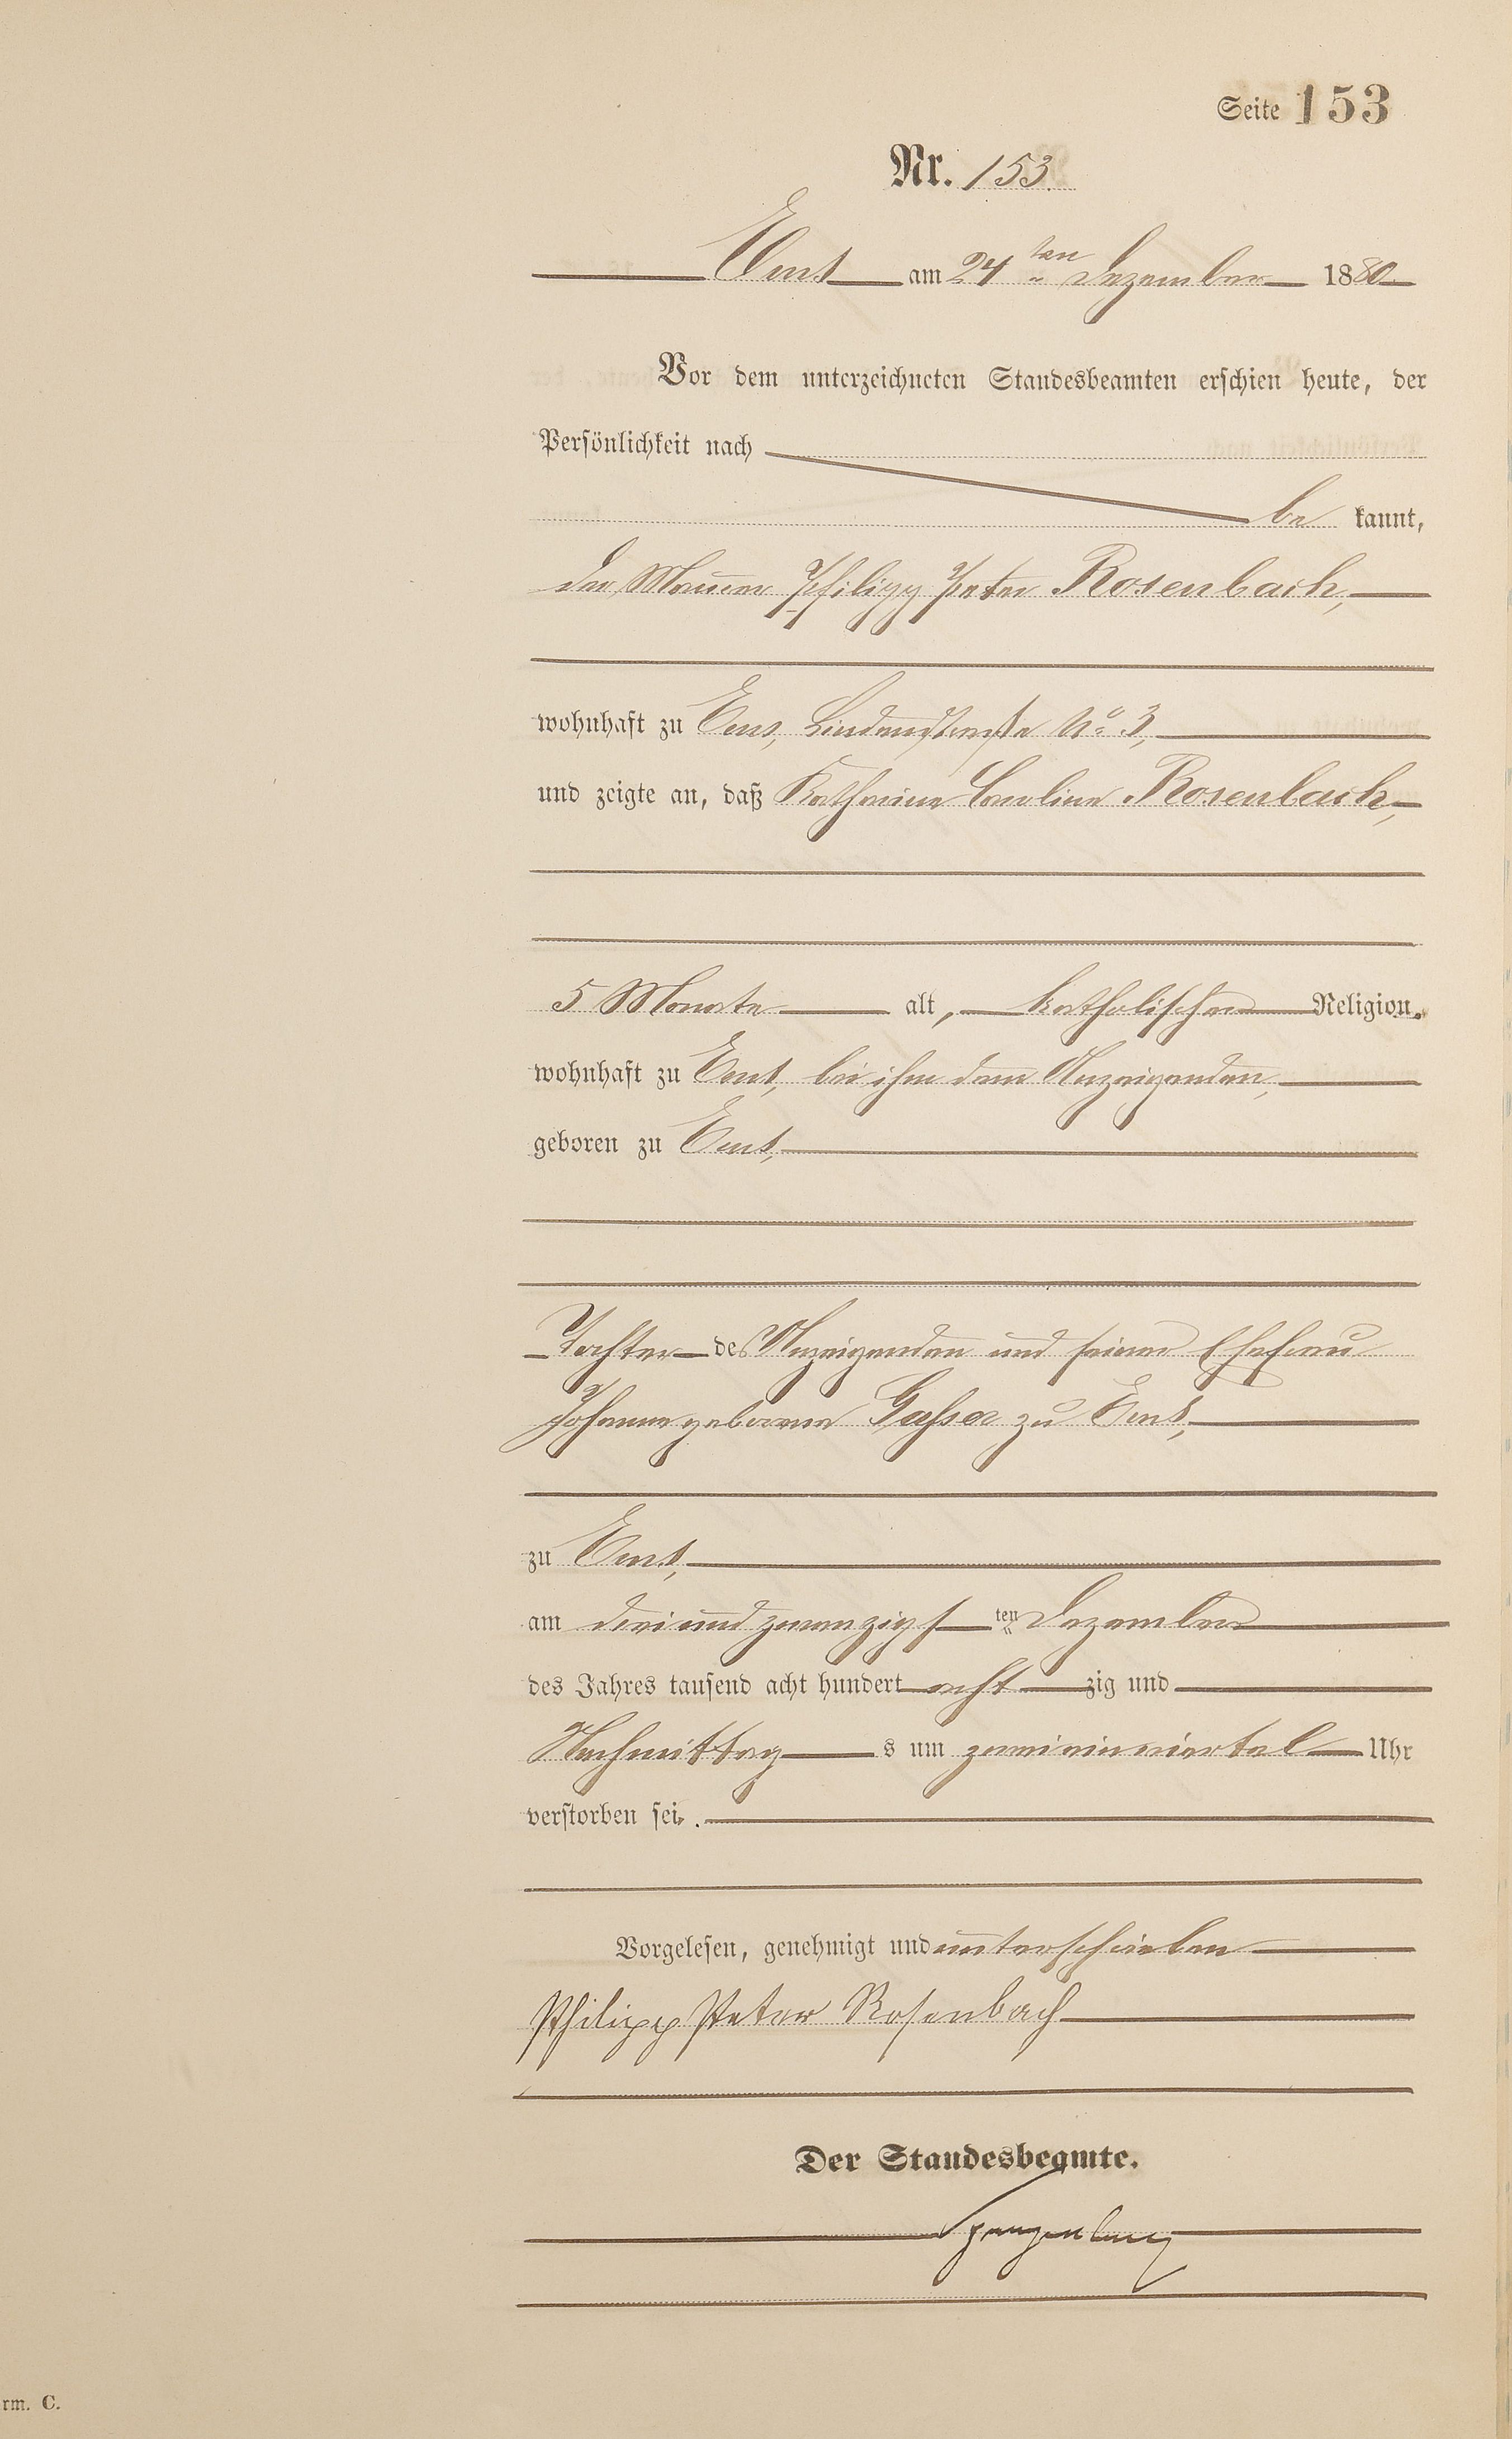 Seite 153
Nr. 153.
Ems am 24ten Dezember 1880
Vor dem unterzeichneten Standesbeamten erschien heute, der
Persönlichkeit nach
be kannt,
der Maurer Philipp Peter Rosenbach,
wohnhaft zu Ems, Lindenstraße No 3,
und zeigte an, daß Katharine Caroline Rosenbach,
5 Monate alt, katholischer Religion.
wohnhaft zu Ems, bei ihm dem Anzeigenden,
geboren zu Ems,
Tochter des Anzeigenden und seiner Ehefrau
Johanne geborene Gasser zu Ems,
zu Ems,
am dreiundzwanzigsten Dezember
des Jahres tausend acht hundert acht zig und
Nachmittag s um zweieinviertel Uhr
verstorben sei.
Vorgelesen, genehmigt und unterschrieben
Philipp Peter Rosenbach
Der Standesbeamte.
Spangenberg
rm. C.